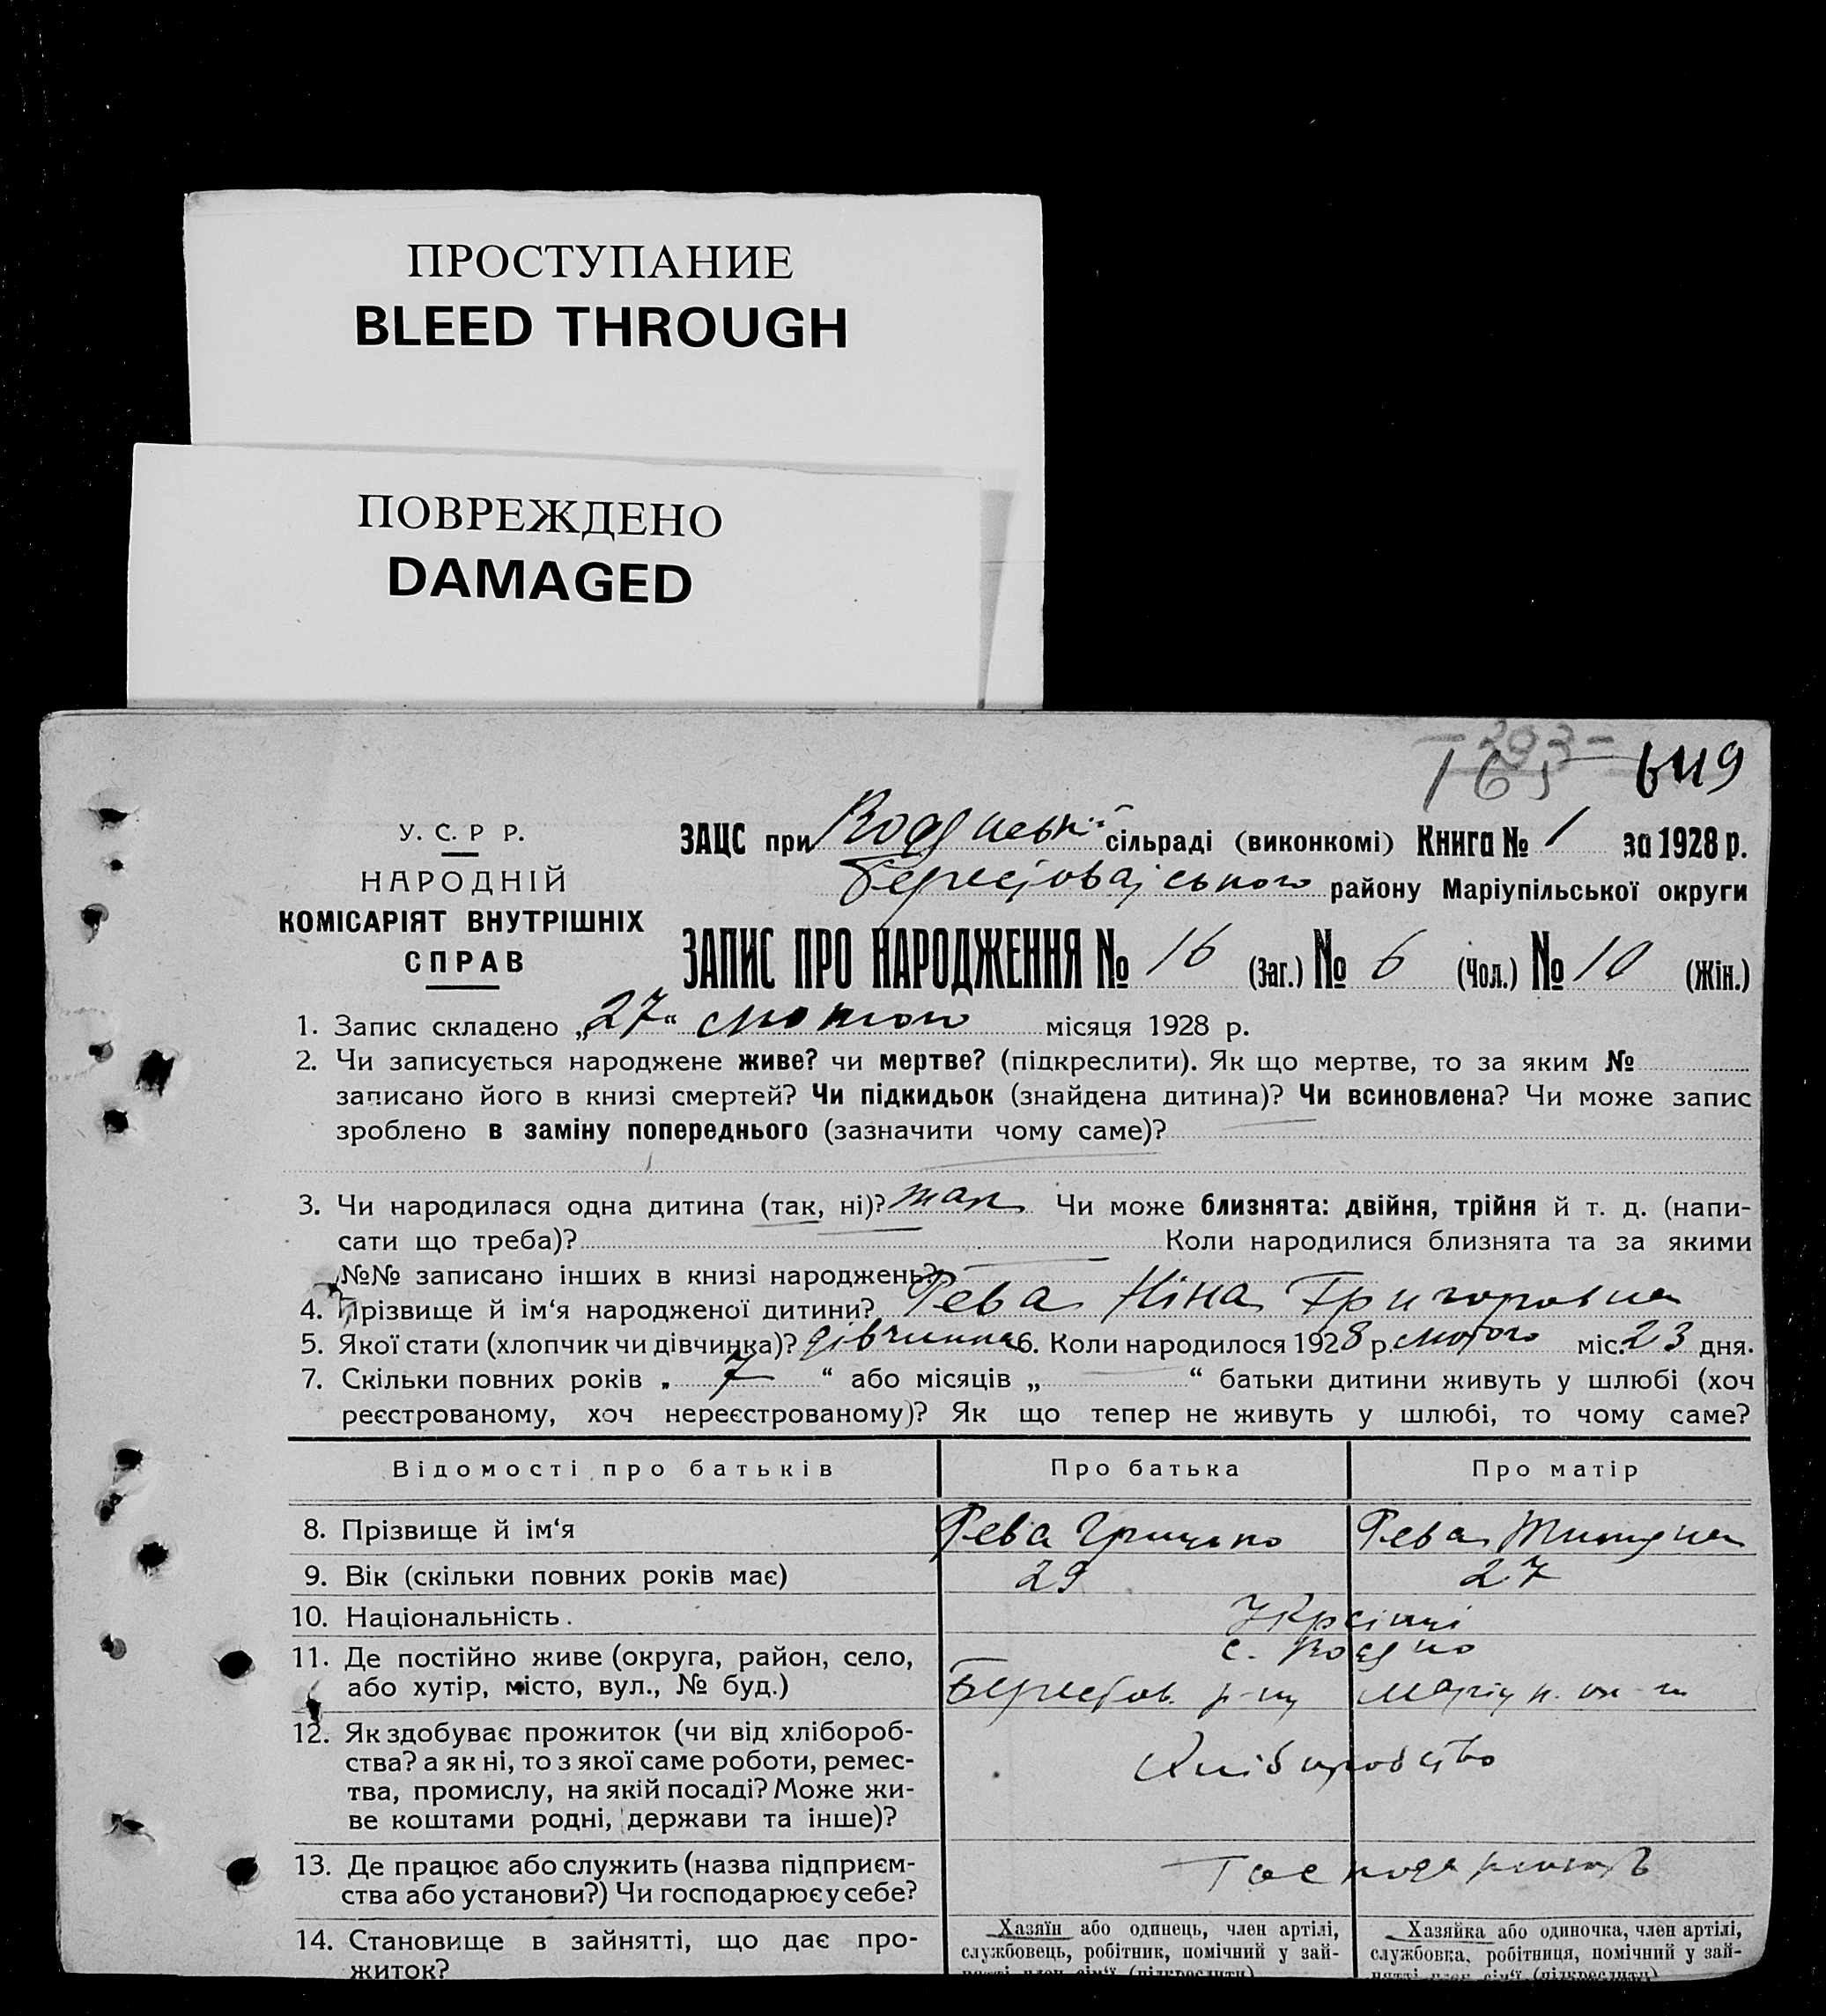 ПРОСТУПАНИЕ
BLEED THROUGH
ПОВРЕЖДЕНО
DAMAGED
293
165 649
У. С. Р Р.
НАРОДНІЙ
КОМІСАРІЯТ ВНУТРІШНІХ
СПРАВ
ЗАЦС при сільраді (виконкомі) Книга № 1 за 1928 р.
району Маріупільської округи
ЗАПИС ПРО НАРОДЖЕННЯ № 16 (Заг.) № 6 (Чол.) № 10 (Жін.)
1. Запис складено „27“ лютого місяця 1928 р.
2. Чи записується народжене живе? чи мертве? (підкреслити). Як що мертве, то за яким №
записано його в книзі смертей? Чи підкидьок (знайдена дитина)? Чи всиновлена? Чи може запис
зроблено в заміну попереднього (зазначити чому саме)?
3. Чи народилася одна дитина (так, ні)? так Чи може близнята: двійня, трійня й т. д. (напи-
сати що треба)? Коли народилися близнята та за якими
№№ записано інших в книзі народжень?
4. Прізвище й ім‘я народженої дитини? Рева Ніна Григоровна
5. Якої стати (хлопчик чи дівчинка)? дівчинка 6. Коли народилося 1928 р. лютого міс. 23 дня.
7. Скільки повних років „ 7 “ або місяців „ “ батьки дитини живуть у шлюбі (хоч
реєстрованому, хоч нереєстрованому)? Як що тепер не живуть у шлюбі, то чому саме?
Відомості про батьків Про батька Про матір
8. Прізвище й ім‘я Рева Грицько Рева
9. Вік (скільки повних років має) 29 27
10. Національність. Укрсінці
11. Де постійно живе (округа, район, село, с.
або хутір, місто, вул., № буд.) Берестов. р-ну Маріуп. ок-ги
12. Як здобуває прожиток (чи від хлібороб-
ства? а як ні, то з якої саме роботи, ремес-
тва, промислу, на якій посаді? Може жи-
ве коштами родні, держави та інше)?
Хліборобство
13. Де працює або служить (назва підприєм-
ства або установи?) Чи господарює у себе?
14. Становище в зайнятті, що дає про-
житок?
Хазяїн або одинець, член артілі,
службовець, робітник, помічний у зай-
нятті член сім‘ї (підкреслити)
Хазяйка або одиночка, член артілі,
службовка, робітниця, помічний у зай-
нятті член сім‘ї (підкреслити)